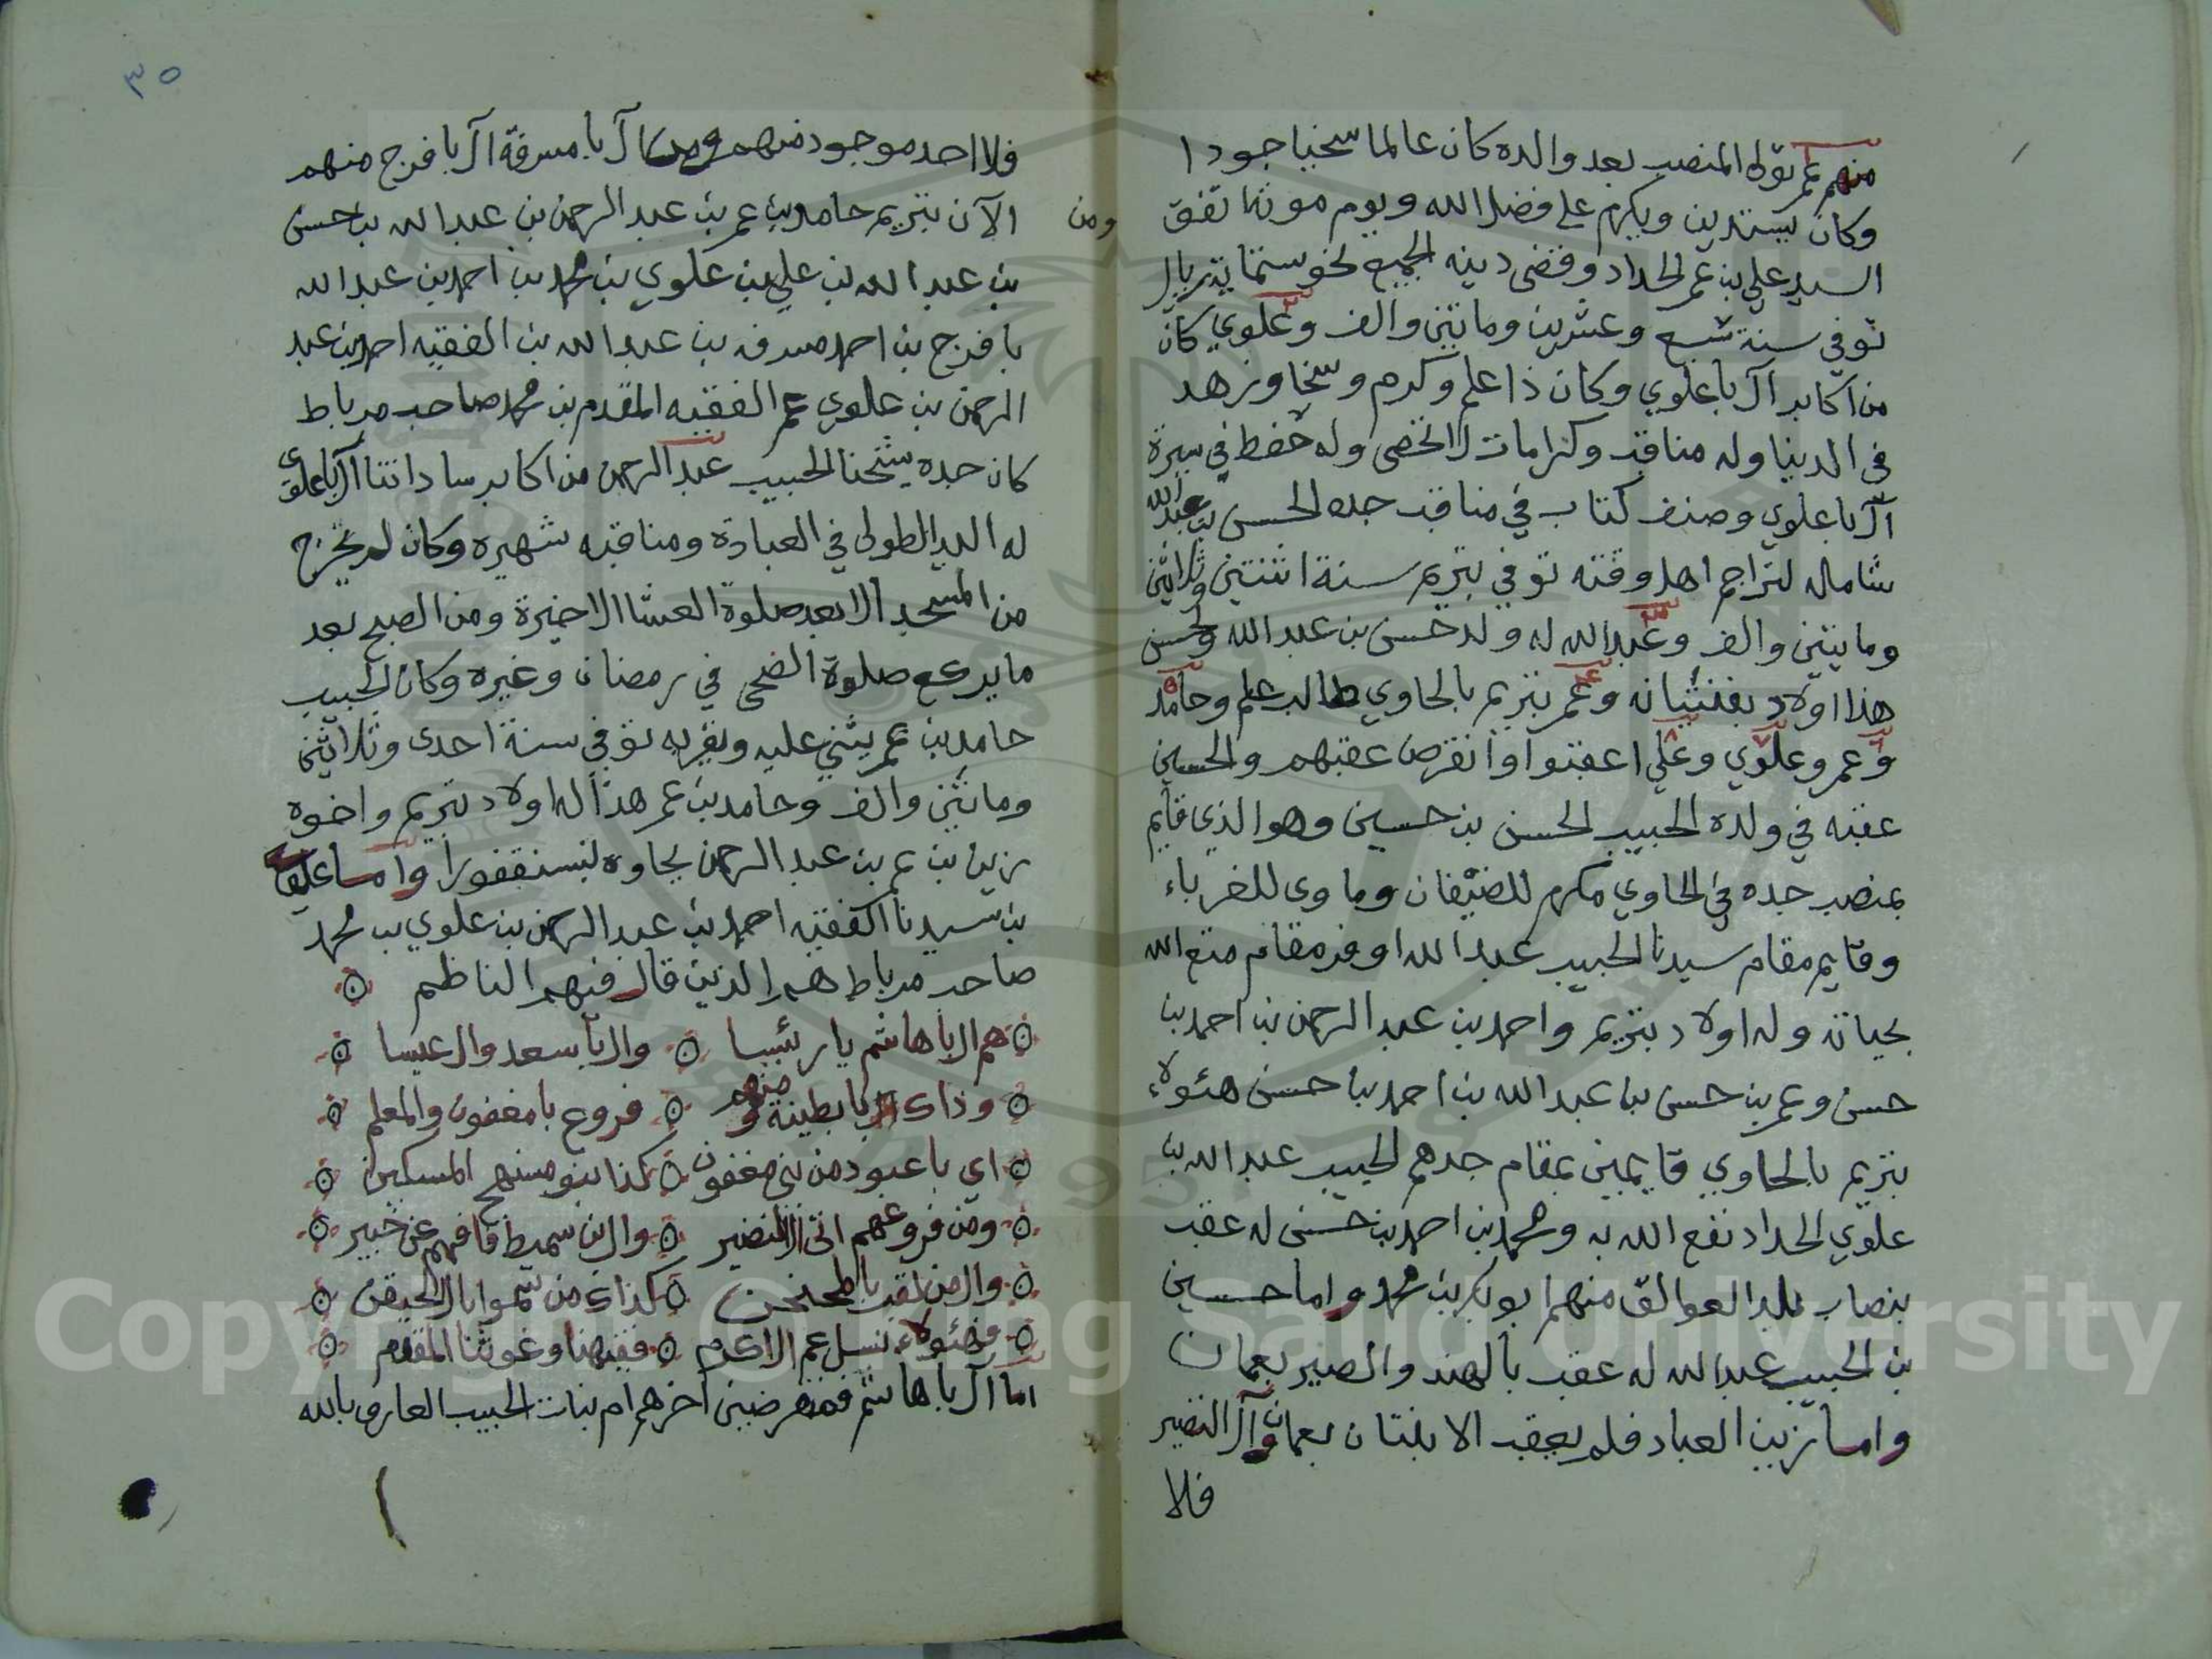 منهم عمر تولى المنصب بعد والده كان عالما سخيا جودا
وكان يستدين ويكرم على فضل الله ويوم موته اتفق
السيد علي بن عمر الحداد وقضى دينه الجميع نحو ستماية ريال
توفي سنة تسع وعشرين ومايتين والف وعلوي كان
من اكابر آل باعلوي وكان ذا علم وكرم وسخا وزهد
في الدنيا وله مناقب وكرامات لا تحصى وله حفظ في سيرة
آل باعلوي وصنف كتاب في مناقب جده الحسن بن عبد الله
شامله لتراجم اهل وقته توفي بتريم سنة اثنتين وثلاثين
ومايتين والف وعبد الله له ولد حسن بن عبد الله ولحسن
هذا اولاد وعمر بتريم بالحاوي طالب علم وحامد
وعمر وعلوي وعلي اعقبوا وانقرض عقبهم والحسين
عقبه في ولده الحبيب الحسن بن حسين وهو الذي قايم
بمنصب جده في الحاوي مكرم للضيفان وماوى للغرباء
وقايم مقام سيدنا الحبيب عبد الله اوفر مقام متع الله
بحياته وله اولاد بتريم واحمد بن عبد الرحمن بن احمد بن
حسن وعمر بن حسن بن عبد الله بن احمد بن حسن هئولاء
بتريم بالحاوي قايمين بمقام جدهم الحبيب عبد الله بن
علوي الحداد نفع الله به ومحمد بن احمد بن حسن له عقب
بنصاب بلد العوالق منهم ابو بكر بن محمد واما حسين
بن الحبيب عبد الله له عقب بالهند والصير بعمان
واما زين العباد فلم يعقب الا بنتان بعمان وآل النضير
فلا
٣٥
فلا احد موجود منهم ومن آل بامسرفة آل بافرج منهم
ومن
الآن بتريم حامد بن عمر بن عبد الرحمن بن عبد الله بن حسن
بن عبد الله بن علي بن علوي بن محمد بن احمد بن عبد الله
بافرج بن احمد مسرفه بن عبد الله بن الفقيه احمد بن عبد
الرحمن بن علوي عم الفقيه المقدم بن محمد صاحب مرباط
كان جده شيخنا الحبيب عبد الرحمن من اكابر ساداتنا آل باعلوي
له اليد الطولى في العبادة ومناقبه شهيره وكان لم يخرج
من المسجد الا بعد صلوة العشا الاخيرة ومن الصبح بعد
ما يركع صلوة الضحى في رمضان وغيره وكان الحبيب
حامد بن عمر يثني عليه ويقربه توفي سنة احدى وثلاثين
ومايتين والف وحامد بن عمر هذا له اولاد بتريم واخوه
زين بن عمر بن عبد الرحمن بجاوه بسنقفورا واما عقب
بن سيدنا الفقيه احمد بن عبد الرحمن بن علوي بن محمد
صاحب مرباط هم الذين قال فيهم الناظم
هم ال باهاشم يا رئيسا وال باسعد وال عيسا
وذاك ال بابطينة ومنهم فروع بامغفون والمعلم
اي باعبود من بني مغفون كذا بنو منهج المسكين
ومن فروعهم اتى ال النضير وال بن سميط فافهم عن خبير
وال من لقب باطحنحن كذاك من سموا بال الحيقن
فهئولاء نسل عم الاكرم فقيهنا وغوثنا المقدم
اما آل باهاشم فمنقرضين آخرهم ام بنات الحبيب العارف بالله
Copyright © King Saud University